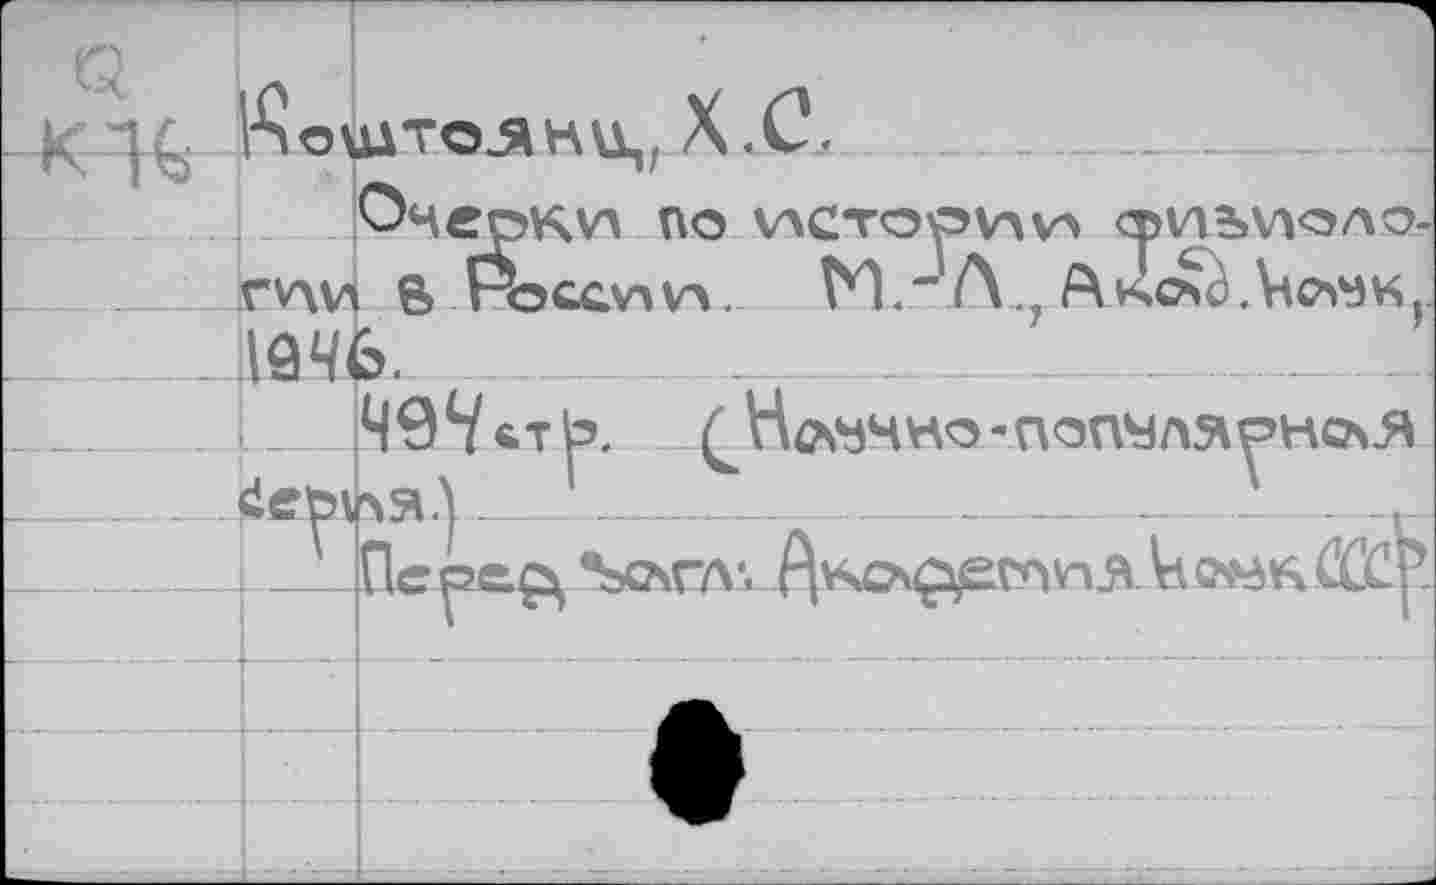 Q
K76
Коштоянц, Х.С.
Очерки по истории физиоло-
гии в России. М.-Л., Акад.Наук,
1946.
494 стр. (Научно-популярная
серия.)
Перед загл: Академия Наук СССР.